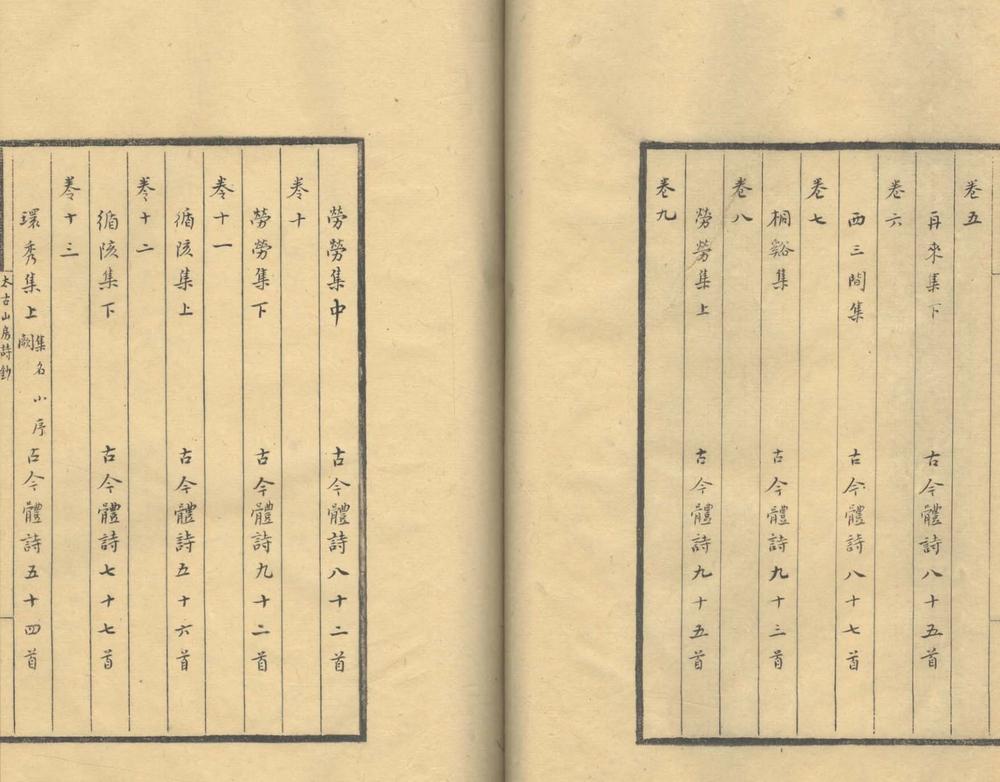 卷五
再來集下 古今體詩八十五首
卷六
西三間集 古今體詩八十七首
卷七
桐谿集 古今體詩九十三首
卷八
勞勞集上 古今體詩九十五首
卷九
勞勞集中 古今體詩八十二首
卷十
勞勞集下 古今體詩九十二首
卷十一
循陔集上 古今體詩五十六首
卷十二
循陔集下 古今體詩七十七首
卷十三
環秀集上 集名小序闕 古今體詩五十四首
太古山房詩鈔